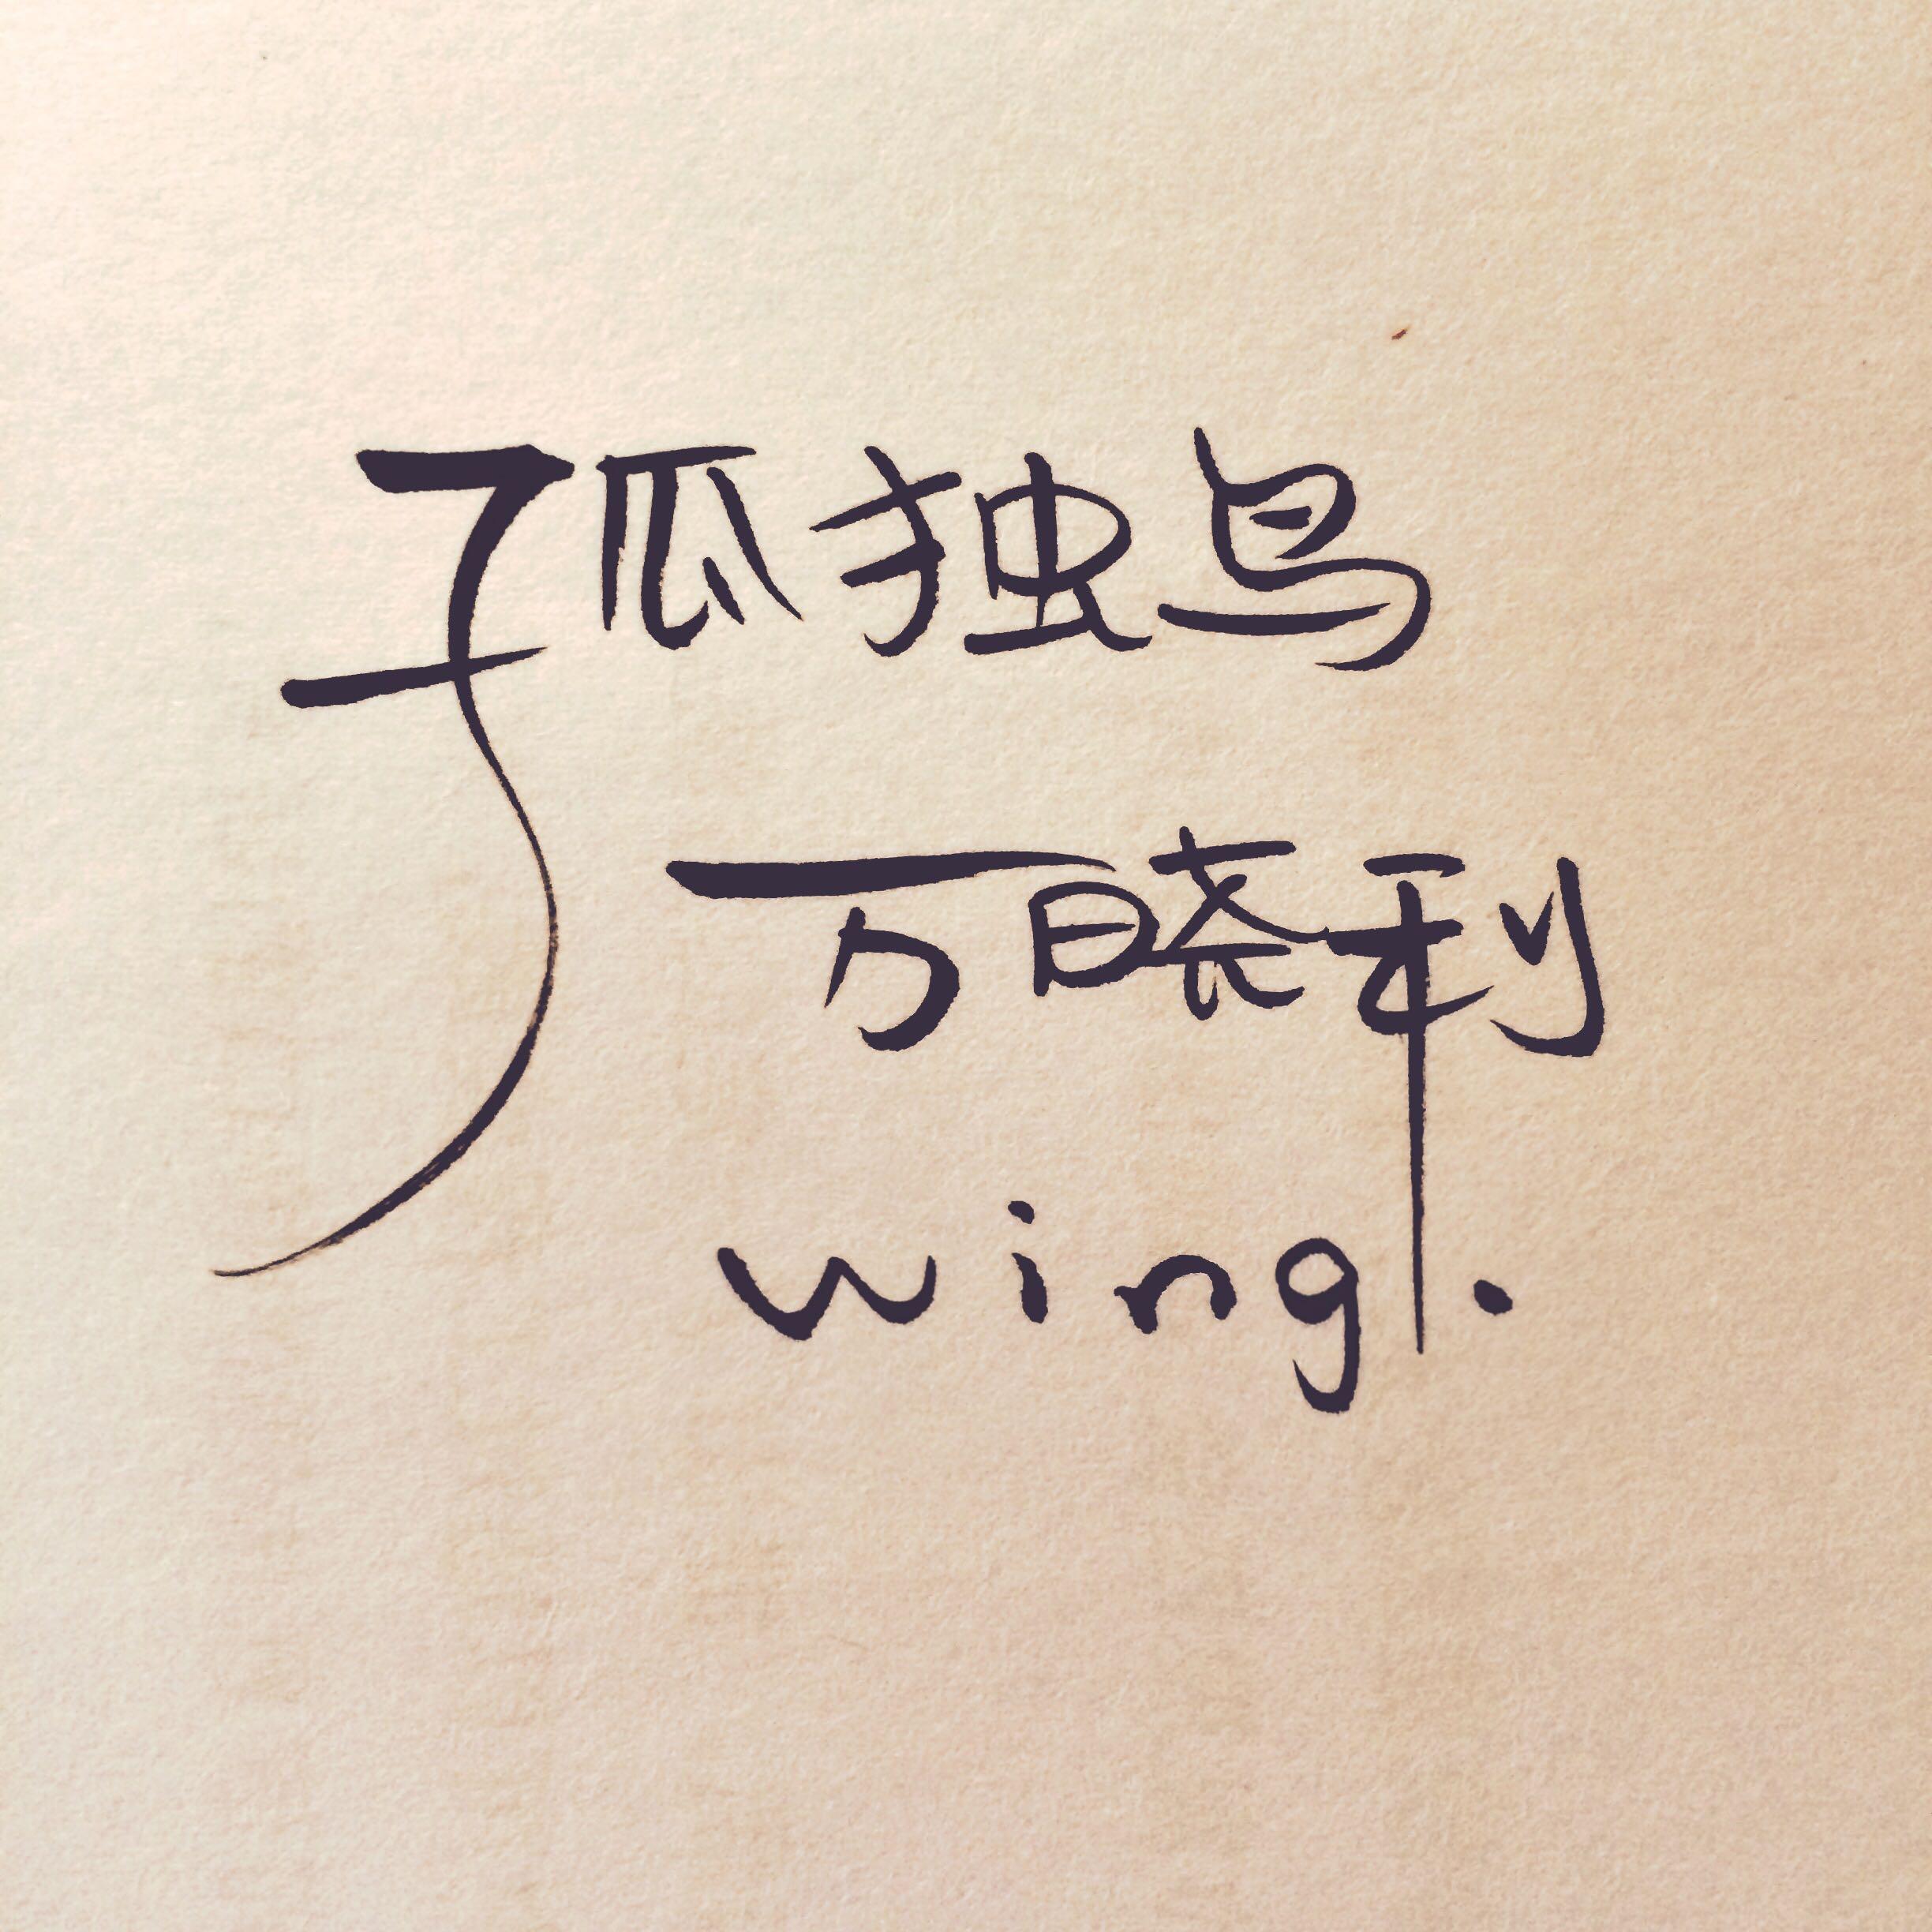 孤独鸟
万晓利
wing.